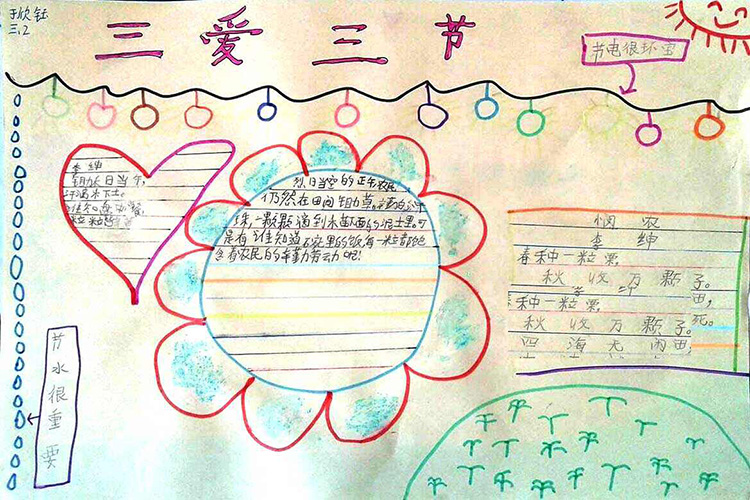 于欣钰
三.2
三爱三节
节电很环宝
李绅
锄禾日当午,
汗滴禾下土。
谁知盘中餐,
粒粒
烈日当空的正午农民
仍然在田间锄草。
珠一颗颗滴到禾苗下面的泥土里。可
是有谁知道
含着农民的辛勤劳动呢!
悯农
李绅
春种一粒粟,
秋收万颗子。
春种一粒粟,
田,
秋收万颗子。
死。
四海无闲田,
节水很重要